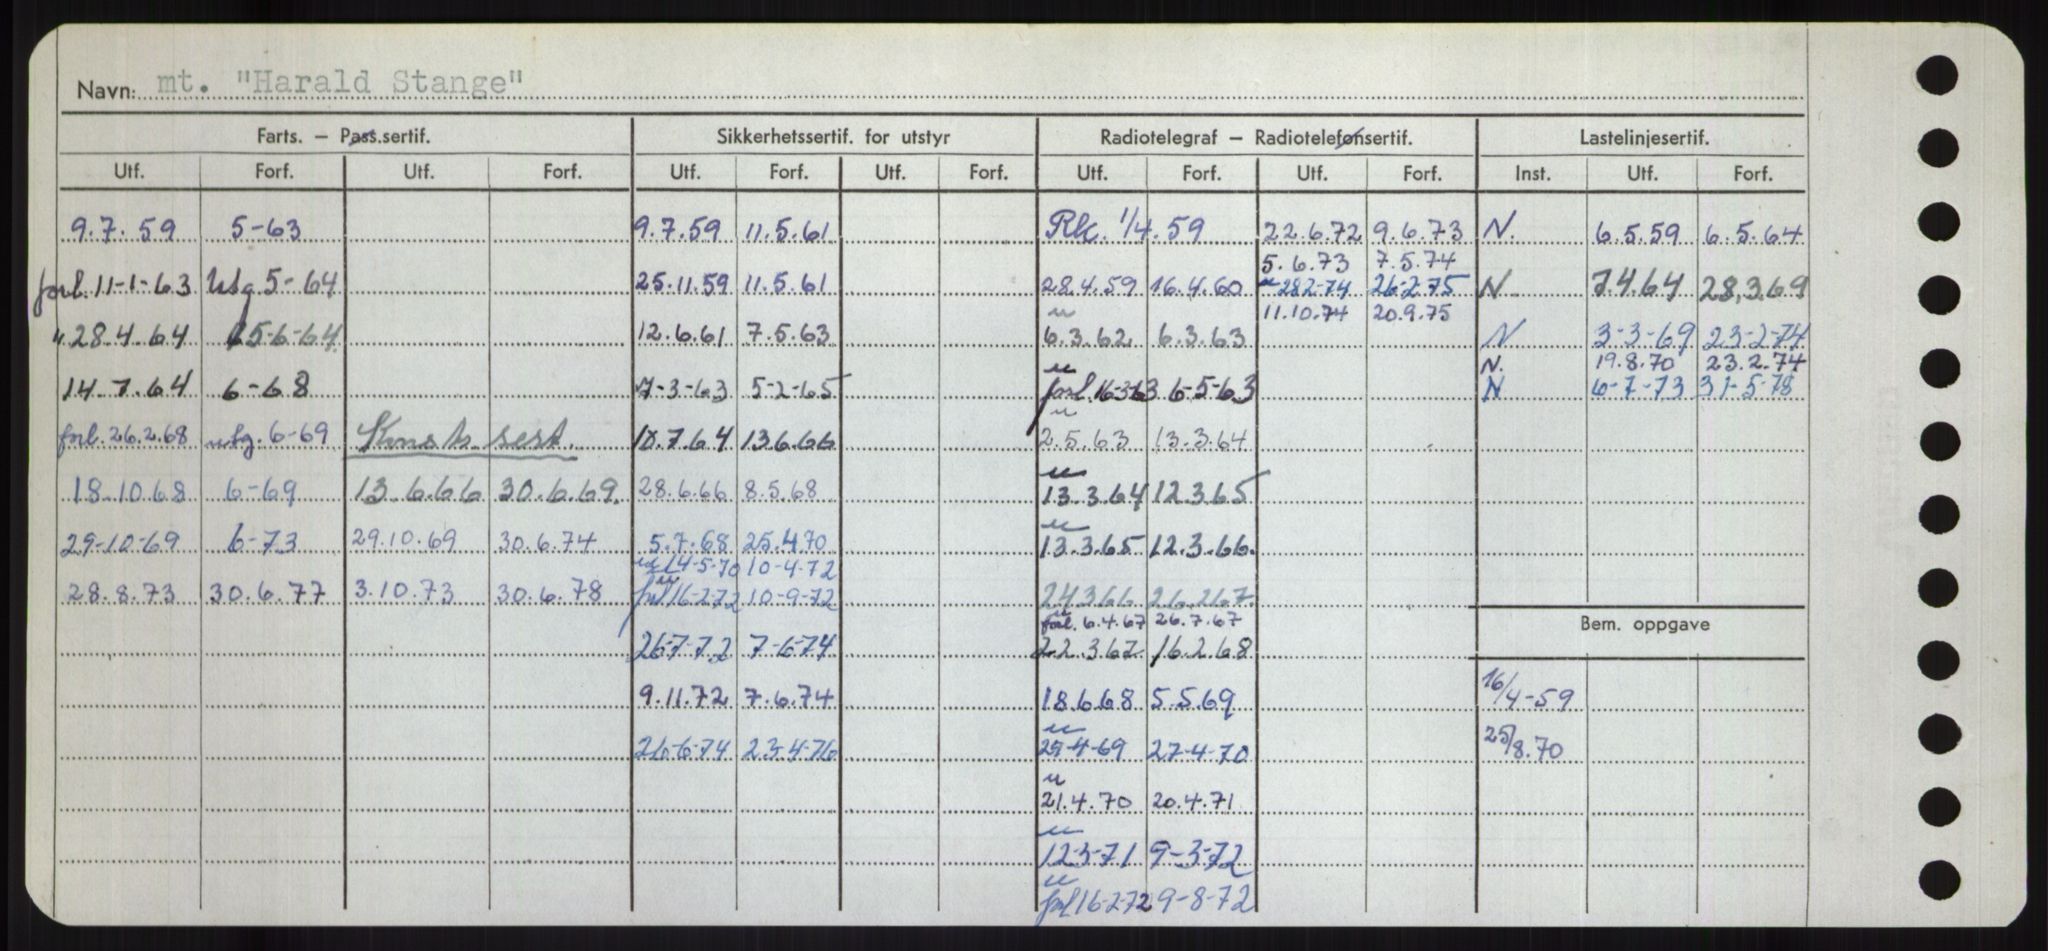 Navn: mt. "Harald Stange"
Farts. — Pass.sertif. Sikkerhetssertif. for utstyr Radiotelegraf — Radiotelefonsertif. Lastelinjesertif.
Utf. Forf. Utf. Forf. Utf. Forf. Utf. Forf. Utf. Forf. Utf. Forf. Inst. Utf. Forf.
9.7.59 5-63 9.7.59 11.5.61 Rk. 1/4.59 22.6.72 9.6.73 N. 6.5.59 6.5.64
5.6.73 7.5.74
forl. 11-1-63 utg 5-64 25.11.59 11.5.61 28.4.59 16.4.60 " 28.2-74 26-2.75 N 7.4.64 28.3.69
11.10.74 20.9.75
" 28.4.64 15-6-64 12.6.61 7.5.63 " 6.3.62 6.3.63 N 3-3-69 23-2-74
N. 19.8.70 23.2.74
14.7.64 6-68 7-3-63 5-2-65 " forl. 16-3-63 6-5-63 N 6-7-73 31-5-78
forl. 26.2.68 utg. 6-69 Konstr. sert. 10.7.64 13.6.66 " 2.5.63 13.3.64
18.10.68 6-69 13.6.66 30.6.69. 28.6.66 8.5.68 " 13.3.64 12.3.65
29-10-69 6-73 29.10.69 30.6.74 5.7.68 25.4.70 " 13.3.65 12.3.66.
14-5-70 10-4-72
28.8.73 30.6.77 3.10.73 30.6.78 " forl 16-2-72 10-9-72 24.3.66 26.2.67.
" forl. 6.4.67 26.7.67
Bem. oppgave
26-7-72 7-6-74 22.3.67 16.2.68
9.11.72 7.6.74 18.6.68 5.5.69 16/4-59
26-6-74 23-4-76 " 29-4-69 27-4-70 25/8.70
" 21.4.70 20.4.71
" 12-3-71 9-3-72
" forl 16-2-72 9-8-72